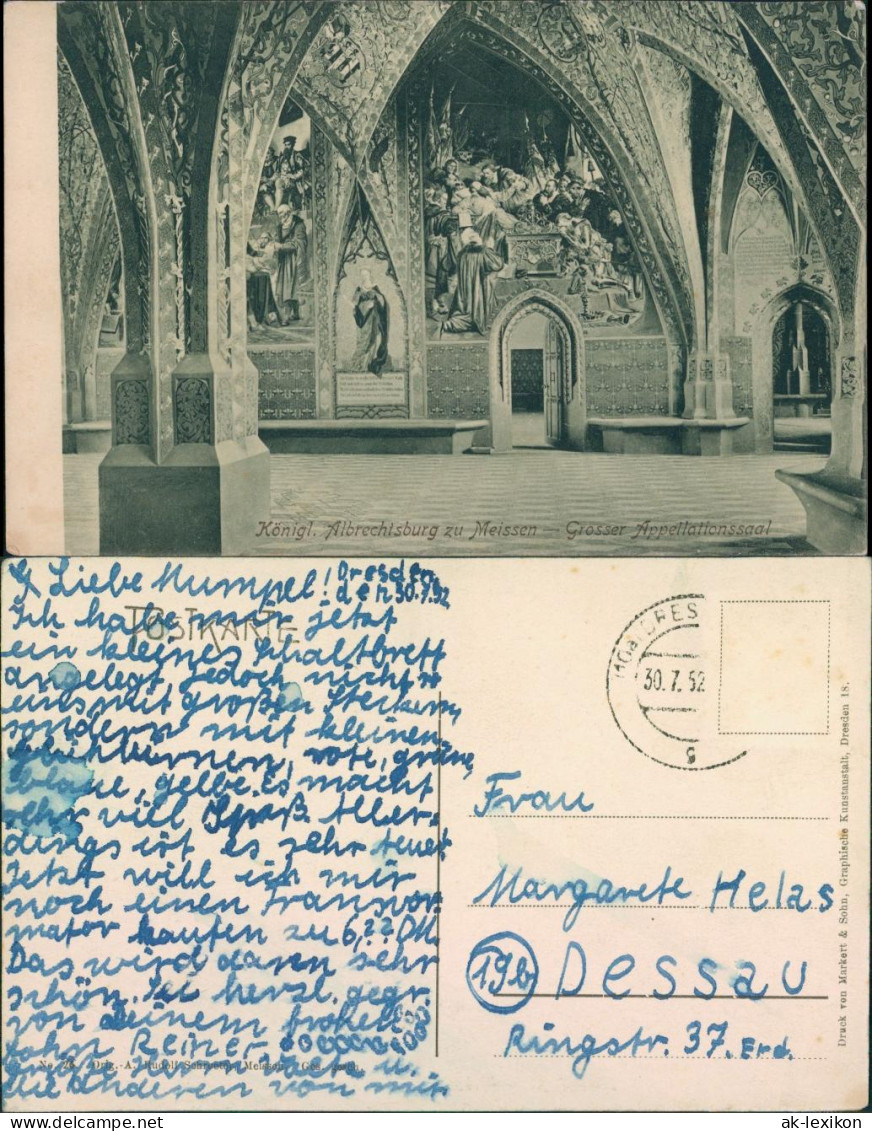 Königl. Albrechtsburg zu Meissen — Grosser Appellationssaal
Liebe Mumpel! Dresden
den 30.7.52
POSTKARTE
Ich habe mir jetzt
ein kleines Schaltbrett
angelegt jedoch nicht
eins mit großen Steckern,
sondern mit kleinen
Glühbirnen, rote, grüne,
blaue, gelbe. Es macht
sehr viel Spaß. Aller-
dings ist es sehr teuer
Jetzt will ich mir
noch einen Transvor-
mator kaufen zu 6,22 DM.
Das wird dann sehr
schön. Sei herzl. gegr.
von deinem frohen
Sohn Reiner
u.
die anderen von mir
No. 26. Orig.-A. Rudolf Meissen. Ges. gesch.
DRESDEN
30.7.52
c
Frau
Margarete Helas
19b Dessau
Ringstr. 37. Erd.
Druck von Markert & Sohn, Graphische Kunstanstalt, Dresden 18.
ak-lexikon